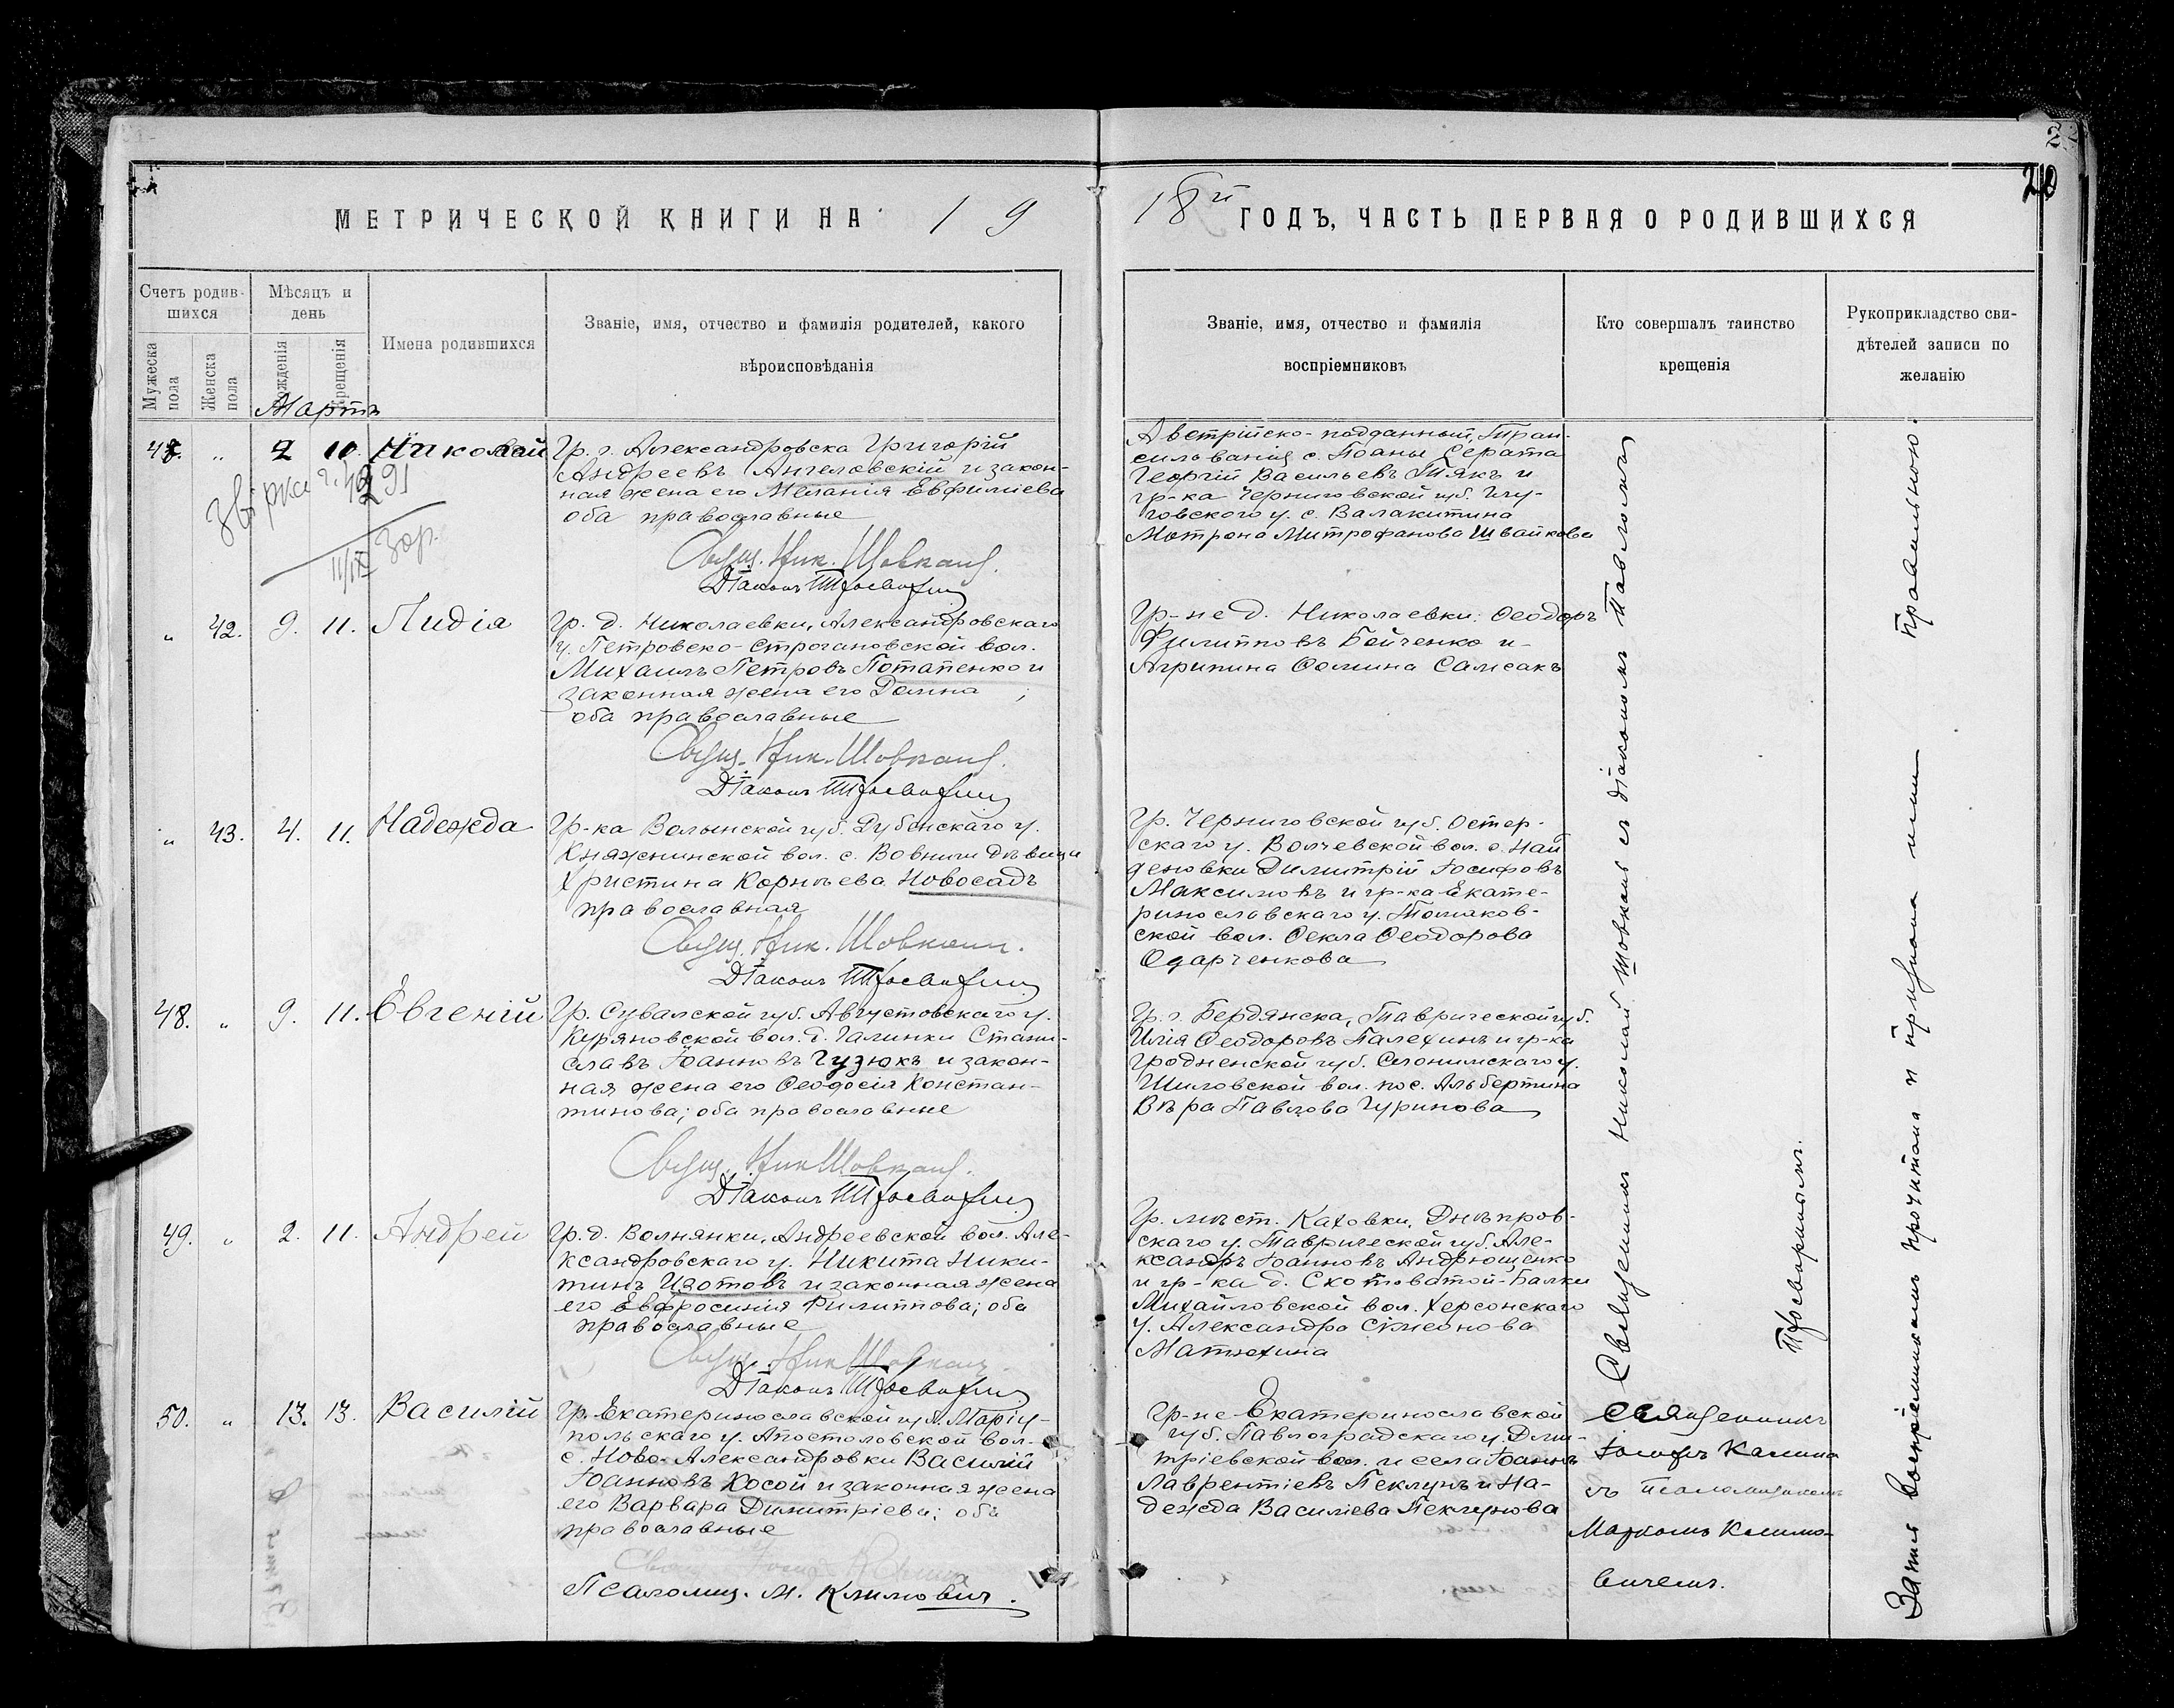 20
МЕТРИЧЕСКОЙ КНИГИ НА 19
18й ГОДЪ, ЧАСТЬ ПЕРВАЯ О РОДИВШИХСЯ
Счетъ родив-
шихся
Мужеска пола
Женска пола
Мѣсяцъ и
день
рожденія
Крещенія
Имена родившихся
Званіе, имя, отчество и фамилія родителей, какого
вѣроисповѣданія
Званіе, имя, отчество и фамилія
воспріемниковъ
Кто совершалъ таинство
крещенія
Рукоприкладство сви-
дѣтелей записи по
желанію
Мартъ
47. " 2 10. Николай
Гр. г. Александровска Григорій
Андреевъ Ангеловскій и закон-
ная жена его Меланія Евфиміева
оба православные
Свящ. Ник. Шовкапл.
Діаконъ
Австрійско-подданный, Тран-
сильваніи с. Поаны Серата
Георгій Васильевъ Тякъ и
гр-ка Черниговской губ.
с. Валакитина
Мотрона Митрофанова Швайкова
Звірка
11/IX
" 42. 9. 11. Лидія
Гр. д. Николаевки, Александровскаго
у. Петровско-Строгановской вол.
Михаилъ Петровъ Потапенко и
законная жена его Домна ;
оба православные
Свящ. Ник. Шовкапл.
Діаконъ
Гр-не д. Николаевки: Ѳеодоръ
Филипповъ Бойченко и
Агрипина Ѳомина Самсакъ
" 43. 4. 11. Надежда
Гр-ка Волынской губ. Дубенскаго у.
Княжнинской вол. с. Вовничи дѣвица
Христина Корнѣева Новосадъ
православная
Свящ. Ник. Шовкапл.
Діаконъ
Гр. Черниговской губ. Остер-
скаго у. Волчевской вол. с. Най
деновки Димитрій Іосифовъ
Максимовъ и гр-ка Екате-
ринославскаго у. Томаков-
ской вол. Ѳекла Ѳеодорова
Одарченкова
48. " 9. 11. Евгеній
Гр. Сувалской губ. Августовскаго у.
Куряновской вол. д. Галинки Стани-
славъ Іоанновъ Гузюкъ и закон-
ная жена его Ѳеодосія Констан-
тинова; оба православные
Свящ. Ник. Шовкапл.
Діаконъ
Гр. г. Бердянска, Таврической губ.
Илія Ѳеодоровъ Палехинъ и гр-ка
Гродненской губ. Слонимскаго у.
Шиловской вол. пос. Альбертина
Вѣра Павлова Гуринова
49. " 2. 11. Андрей
Гр. д. Волнянки, Андреевской вол. Але-
ксандровскаго у. Никита Ники-
тинъ Изотовъ и законная жена
его Евфросинія Филиппова; оба
православные
Свящ. Ник. Шовкапл.
Діаконъ
Гр. мѣст. Каховки, Днѣпров-
скаго у. Таврической губ. Але-
ксандръ Іоанновъ Андрющенко
и гр-ка д. Скотоватой-Балки
Михайловской вол. Херсонскаго
у. Александра Симеонова
Матюхина
50. " 13. 13. Василій
Гр. Екатеринославской губ. Маріу-
польскаго у. Апостоловской вол.
с. Ново-Александровки Василій
Іоанновъ Косой и законная жена
его Варвара Димитріева; оба
православные
Псаломщ. М. Климовичъ.
Гр-не Екатеринославской
губ. Павлоградскаго у. Дми-
тріевской вол. и села Іоаннъ
Лаврентіевъ Пеклунъ и На-
дежда Василіева Пеклунова
Священникъ
Іосифъ Калина
съ псаломщикомъ
Маркомъ Климо-
вичемъ.
Священникъ Николай Шовкапл съ діакономъ Павломъ
Запись воспріемниками прочитана и признана ими правильною.